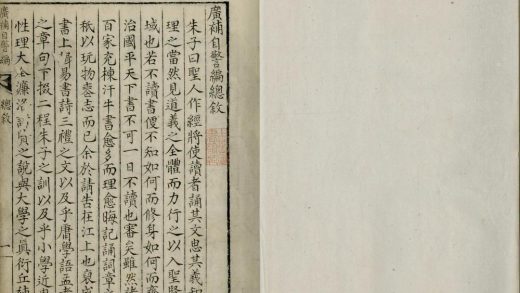 廣補自警編總敘
朱子曰聖人作經將使讀者誦其文思其義知
理之當然見道義之全體而力行之以入聖賢
域也若不讀書便不知如何而修身如何而齊
治國平天下書不可一日不讀也審矣雖然
百家充棟汗牛書愈多而理愈晦記誦詞章之
秪以玩物喪志而已余於請告在江上也裒
書上易書詩三禮之文以及乎庸學語孟
之章句下掇二程朱子之訓以及乎小學近
性理大全濂洛諸賢之說與大學之眞衍丘補
廣補自警編 總敘